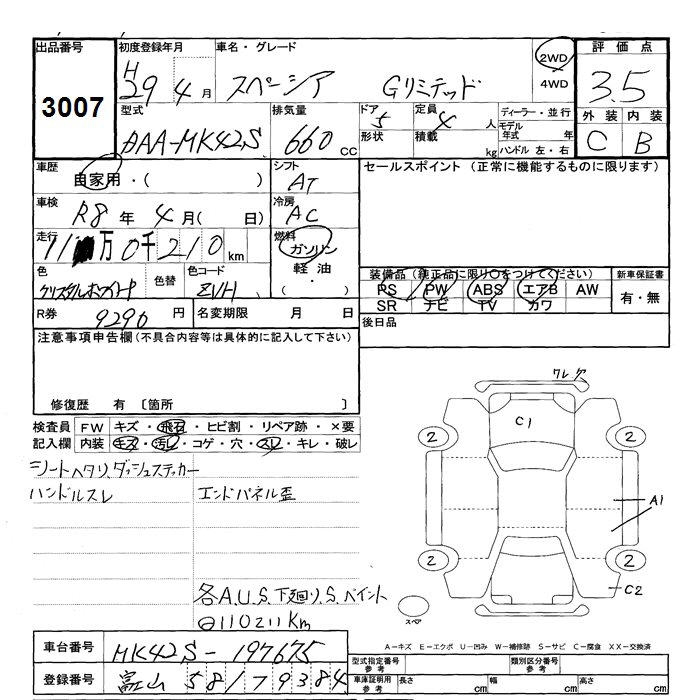 出品番号 初度登録年月 車名・グレード 2WD 評価点
3007 H29年4月 スペーシア Gリミテッド 4WD 3.5
型式 排気量 ドア 5 定員 4人 ディーラー・並行 外装 内装
DAA-MK42S 660cc 形状 積載 kg モデル年式 年 ハンドル 左・右 C B
車歴 自家用・( ) シフト AT セールスポイント(正常に機能するものに限ります)
車検 R8年4月( 日) 冷房 AC
走行 11万0千210km 燃料 ガソリン
軽油
・( )
色 クリスタルホワイト 色替 色コード ZVH 装備品(純正品に限り〇をつけてください) 新車保証書
PS PW ABS エアB AW 有・無
SR ナビ TV カワ
R券 9290円 名変期限 月 日 後日品
注意事項申告欄(不具合内容等は具体的に記入して下さい)
修復歴 有 〔箇所 〕
検査員 FW キズ・飛石・ヒビ割・リペア跡・×要
記入欄 内装 キズ・汚レ・コゲ・穴・スレ・キレ・破レ
シートヘタリ、ダッシュステッカー
ハンドルスレ エンドパネル歪
各A.U.S.下廻り.S.ペイント
110211Km
ワレ
C1
2 2
A1
2 2
C2
スペア
A-キズ E-エクボ U-凹み W-補修跡 S-サビ C-腐食 XX-交換済
車台番号 MK42S-197675
登録番号 富山 581 79384
型式指定番号 参考 類別区分番号 参考
車庫証明用 参考 長さ cm 幅 cm 高さ cm